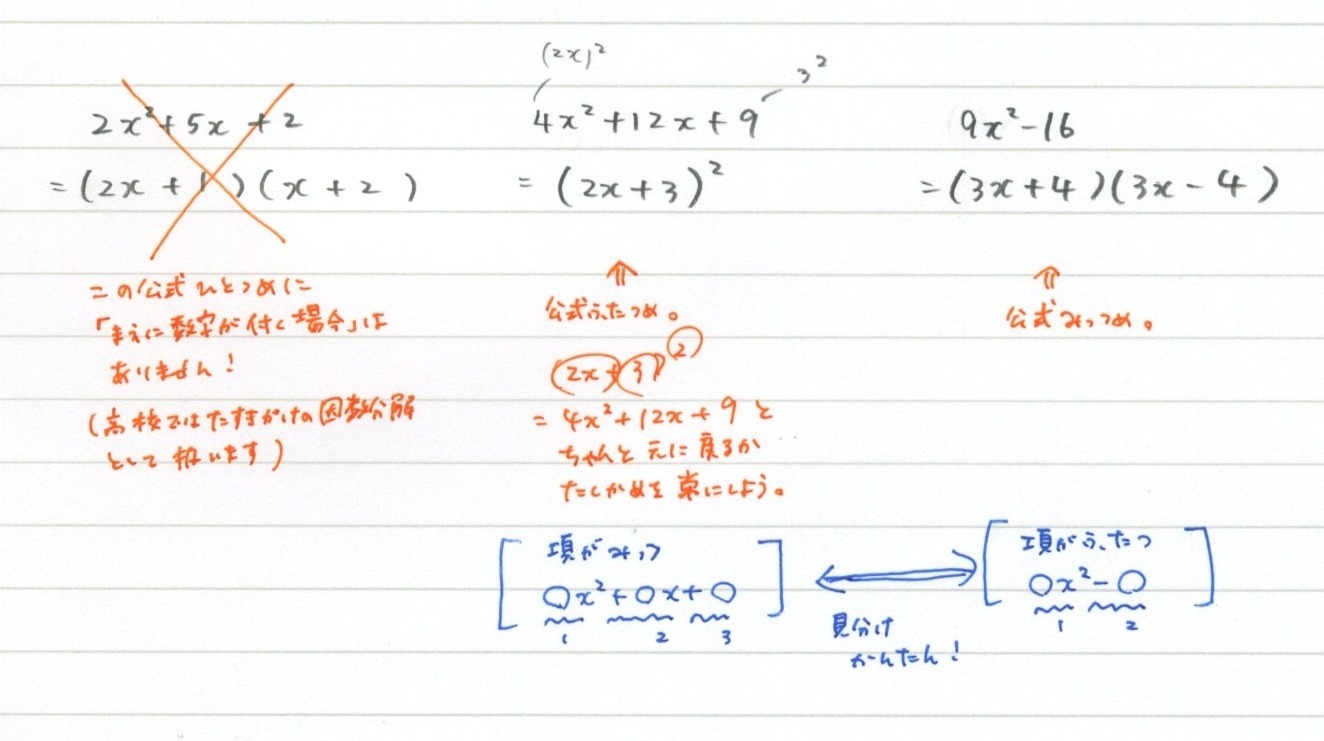 2x²+5x+2
=(2x+1)(x+2)
この公式ひとつめに
「まえに数字が付く場合」は
ありません!
(高校ではたすきがけの因数分解
として扱います)
(2x)²
3²
4x²+12x+9
=(2x+3)²
⇑
公式ふたつめ。
(2x+3)²
=4x²+12x+9と
ちゃんと元に戻るか
たしかめを常にしよう。
9x²-16
=(3x+4)(3x-4)
⇑
公式みっつめ。
項がみっつ
○x²+○x+○
1 2 3
⟺
見分け
かんたん!
項がふたつ
○x²-○
1 2